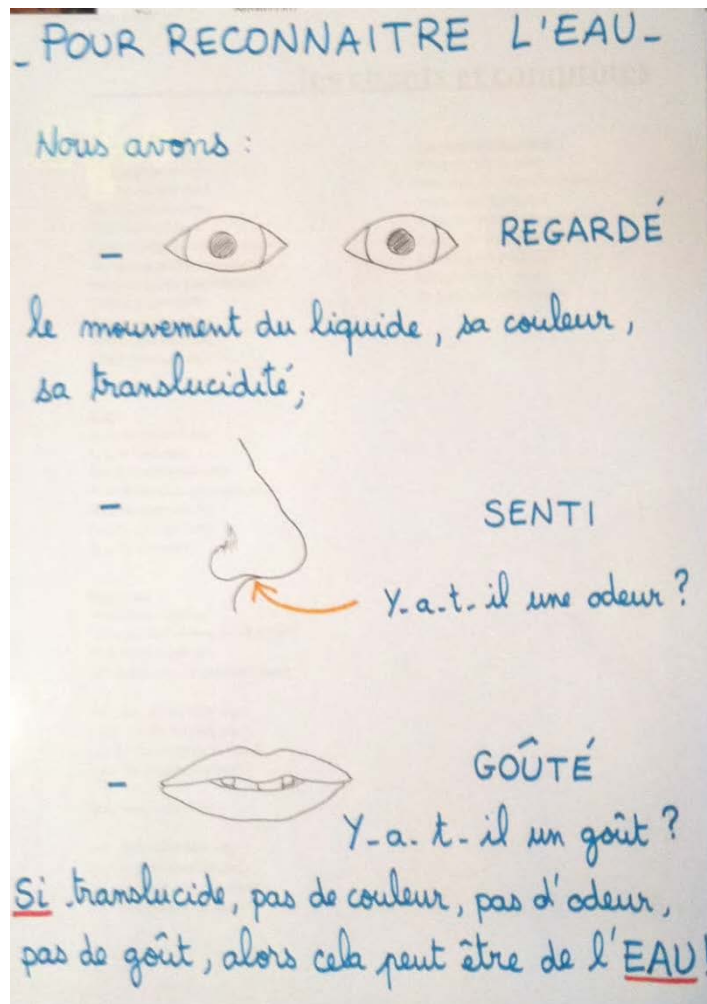 - POUR RECONNAITRE L'EAU -
Nous avons :
- REGARDÉ
le mouvement du liquide, sa couleur,
sa translucidité,
- SENTI
Y-a-t-il une odeur ?
- GOÛTÉ
Y-a-t-il un goût ?
Si translucide, pas de couleur, pas d'odeur,
pas de goût, alors cela peut être de l'EAU !